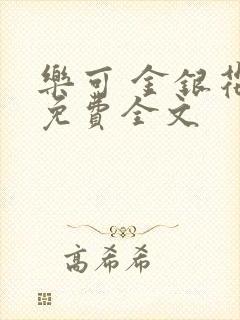 樂可 金銀花
免費全文
高希希